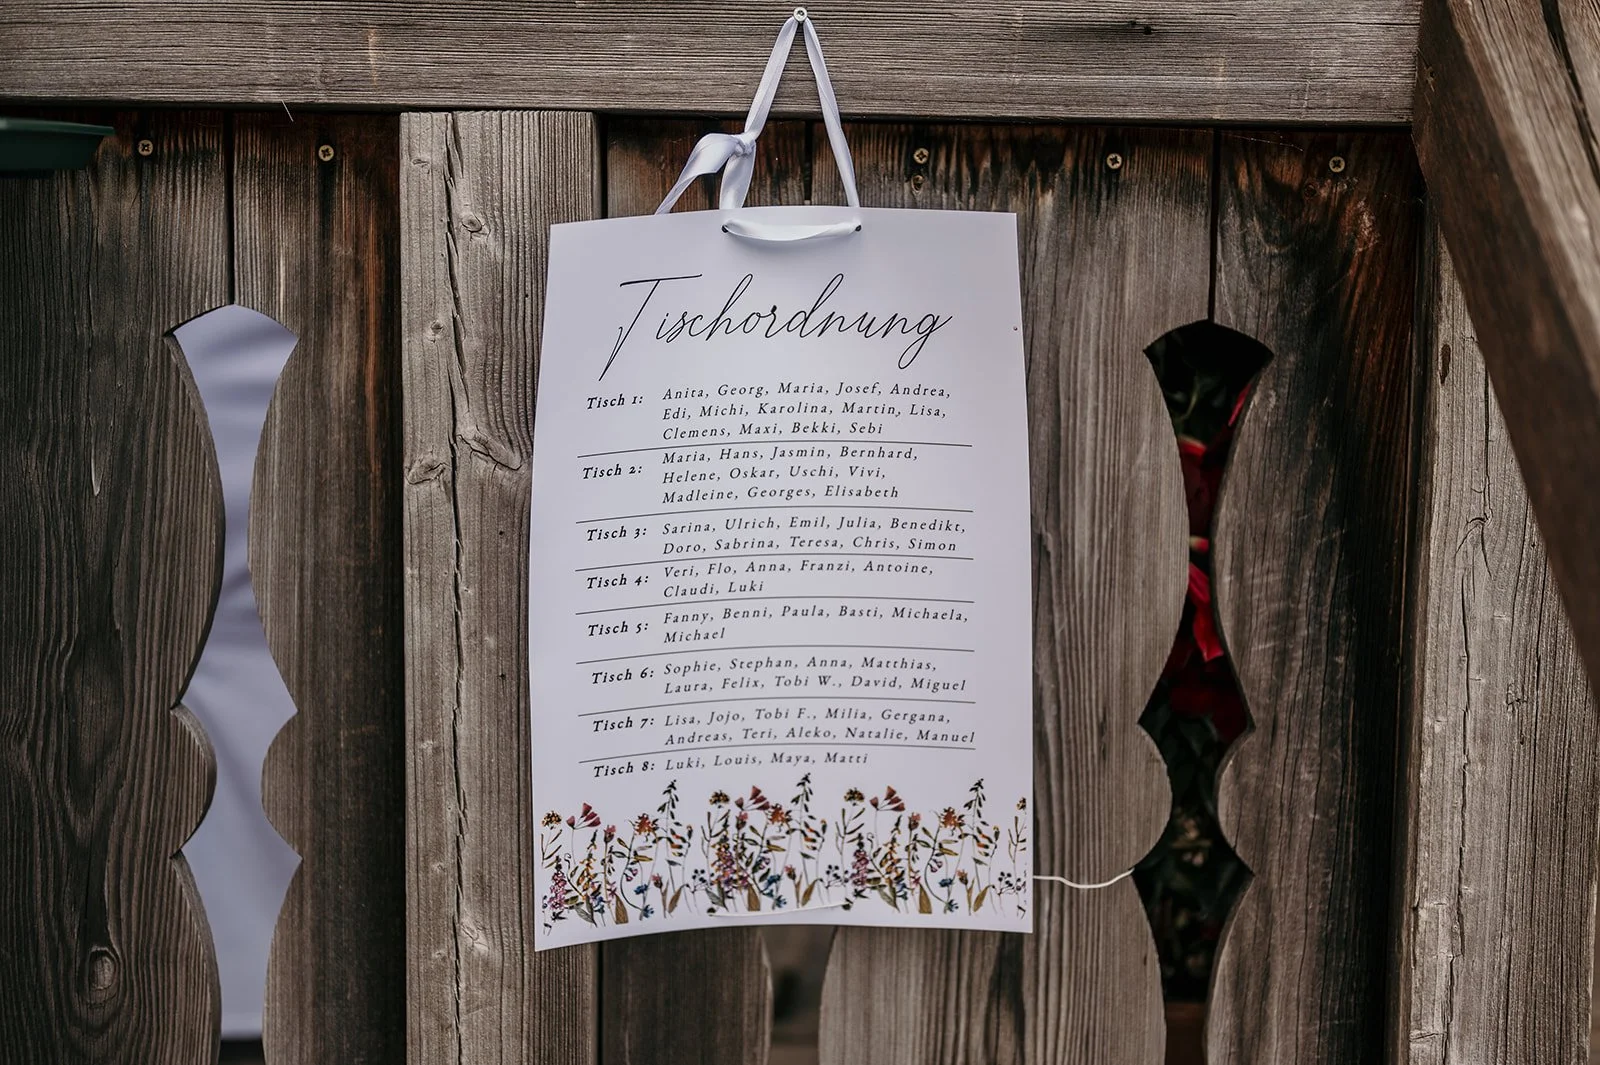 Tischordnung
Tisch 1: Anita, Georg, Maria, Josef, Andrea,
Edi, Michi, Karolina, Martin, Lisa,
Clemens, Maxi, Bekki, Sebi
Tisch 2: Maria, Hans, Jasmin, Bernhard,
Helene, Oskar, Uschi, Vivi,
Madleine, Georges, Elisabeth
Tisch 3: Sarina, Ulrich, Emil, Julia, Benedikt,
Doro, Sabrina, Teresa, Chris, Simon
Tisch 4: Veri, Flo, Anna, Franzi, Antoine,
Claudi, Luki
Tisch 5: Fanny, Benni, Paula, Basti, Michaela,
Michael
Tisch 6: Sophie, Stephan, Anna, Matthias,
Laura, Felix, Tobi W., David, Miguel
Tisch 7: Lisa, Jojo, Tobi F., Milia, Gergana,
Andreas, Teri, Aleko, Natalie, Manuel
Tisch 8: Luki, Louis, Maya, Matti